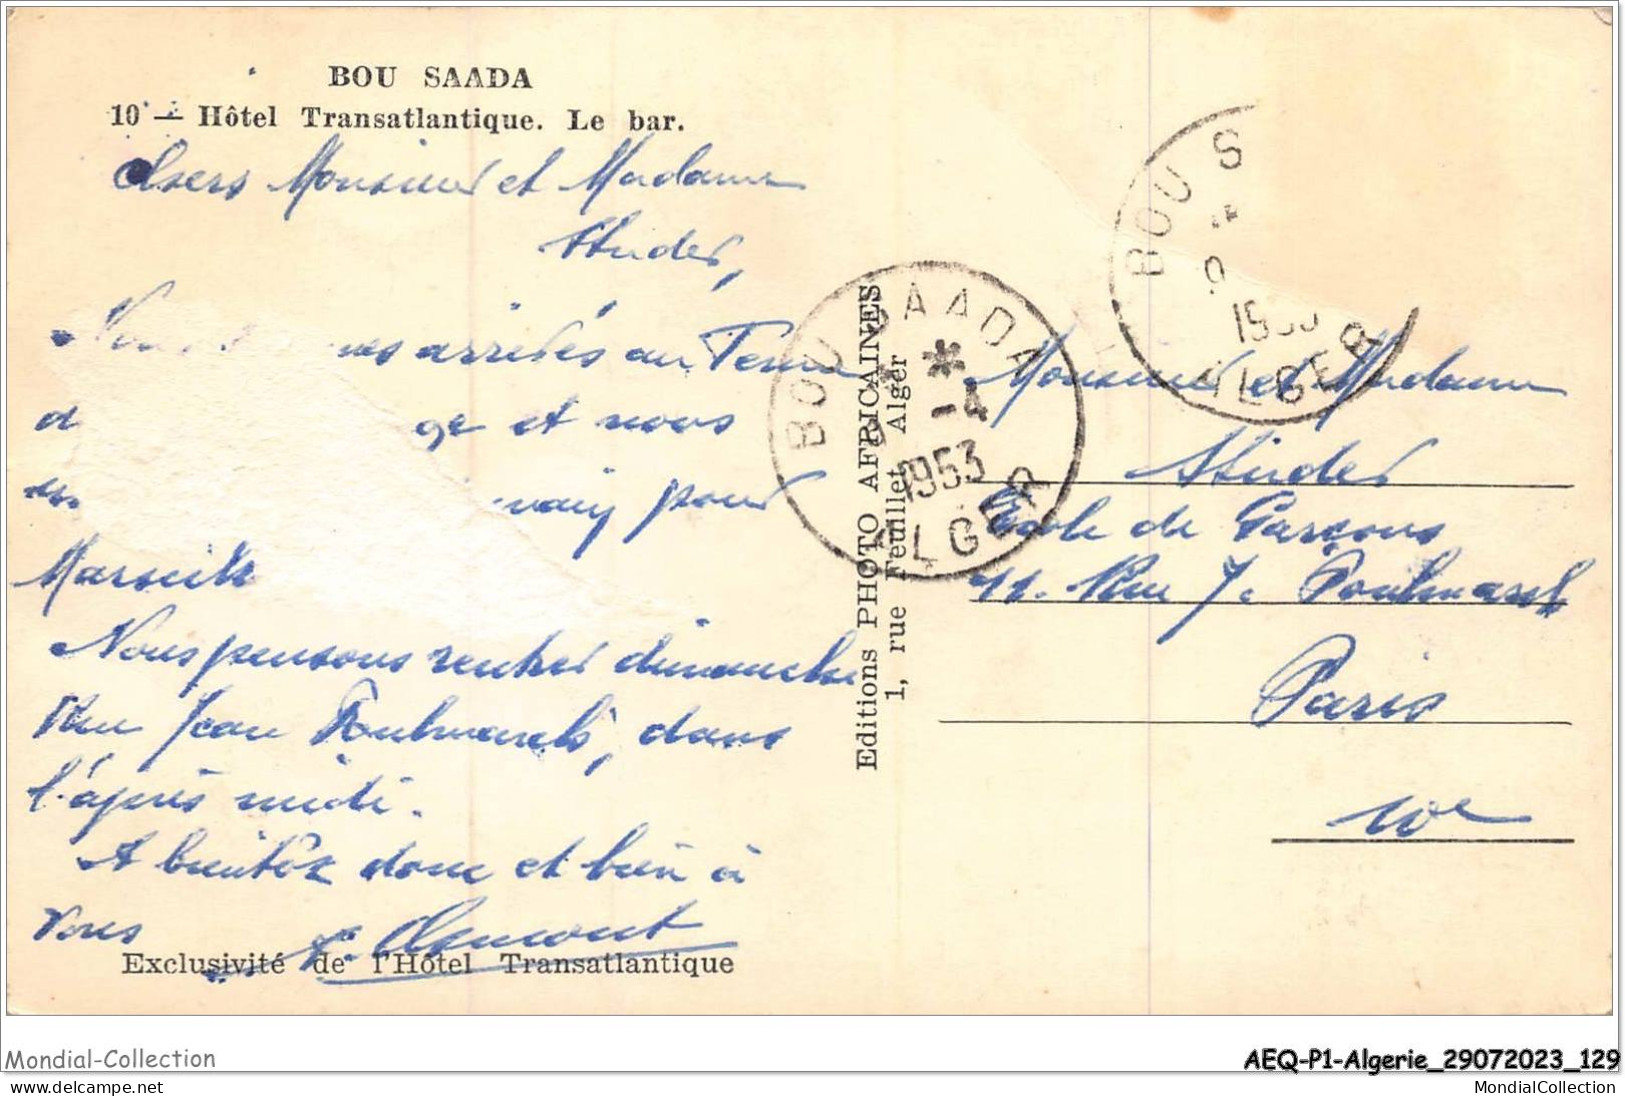 BOU SAADA
10 — Hôtel Transatlantique. Le bar.
Chers Monsieur et Madame
Studer,
arrivés au Terme
et nous
pour
Marseille
Nous pensons rentrer dimanche
Rue Jean Poulmarch, dans
l'après midi.
A bientôt donc et bien à
vous
Exclusivité de l'Hôtel Transatlantique
Editions PHOTO AFRICAINES
1, rue Feuillet Alger
BOU SAADA
* *
-4
1953
ALGER
BOU S
ALGER
Monsieur et Madame
Studer
Ecole de Garçons
Rue J. Poulmarch
Paris
10e
Mondial-Collection
AEQ-P1-Algerie_29072023_129
www.delcampe.net
MondialCollection